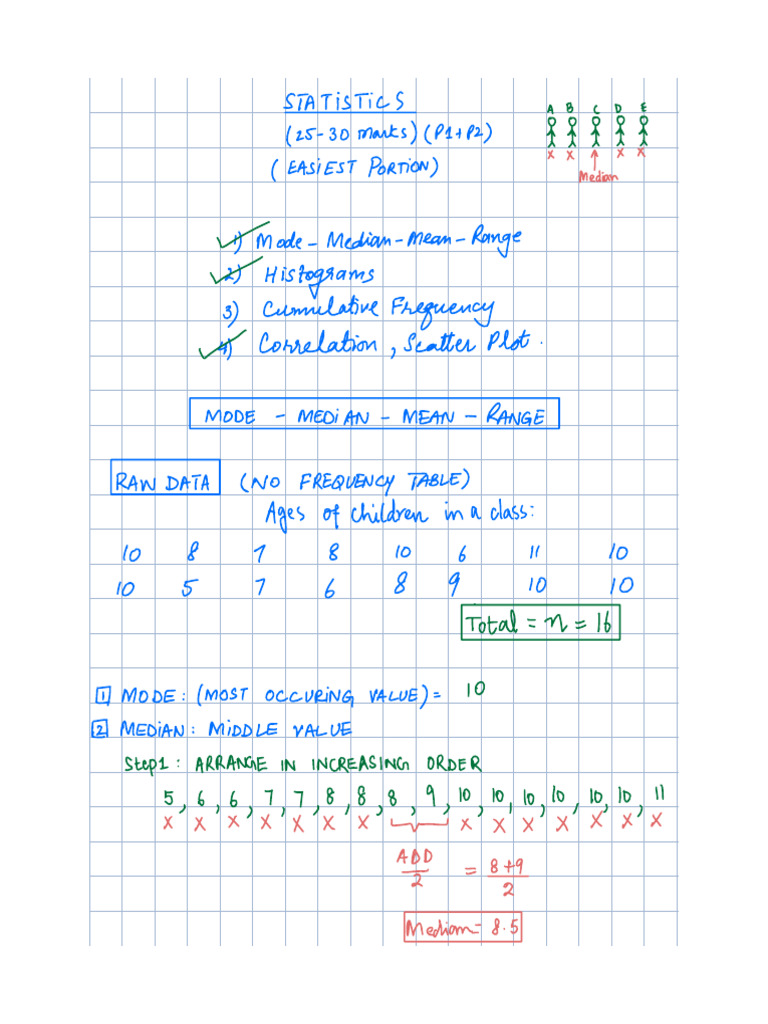 STATISTICS
(25-30 marks) (P1+P2)
(EASIEST PORTION)
A B C D E
X X ↑ X X
Median
1) Mode - Median - Mean - Range
2) Histograms
3) Cumulative Frequency
4) Correlation, Scatter Plot.
MODE - MEDIAN - MEAN - RANGE
RAW DATA (NO FREQUENCY TABLE)
Ages of children in a class:
10 8 7 8 10 6 11 10
10 5 7 6 8 9 10 10
Total = n = 16
1 MODE: (MOST OCCURING VALUE) = 10
2 MEDIAN: MIDDLE VALUE
Step1: ARRANGE IN INCREASING ORDER
5, 6, 6, 7, 7, 8, 8, 8, 9, 10, 10, 10, 10, 10, 10, 11
X X X X X X X X X X X X X X
ADD/2 = 8+9/2
Median = 8.5